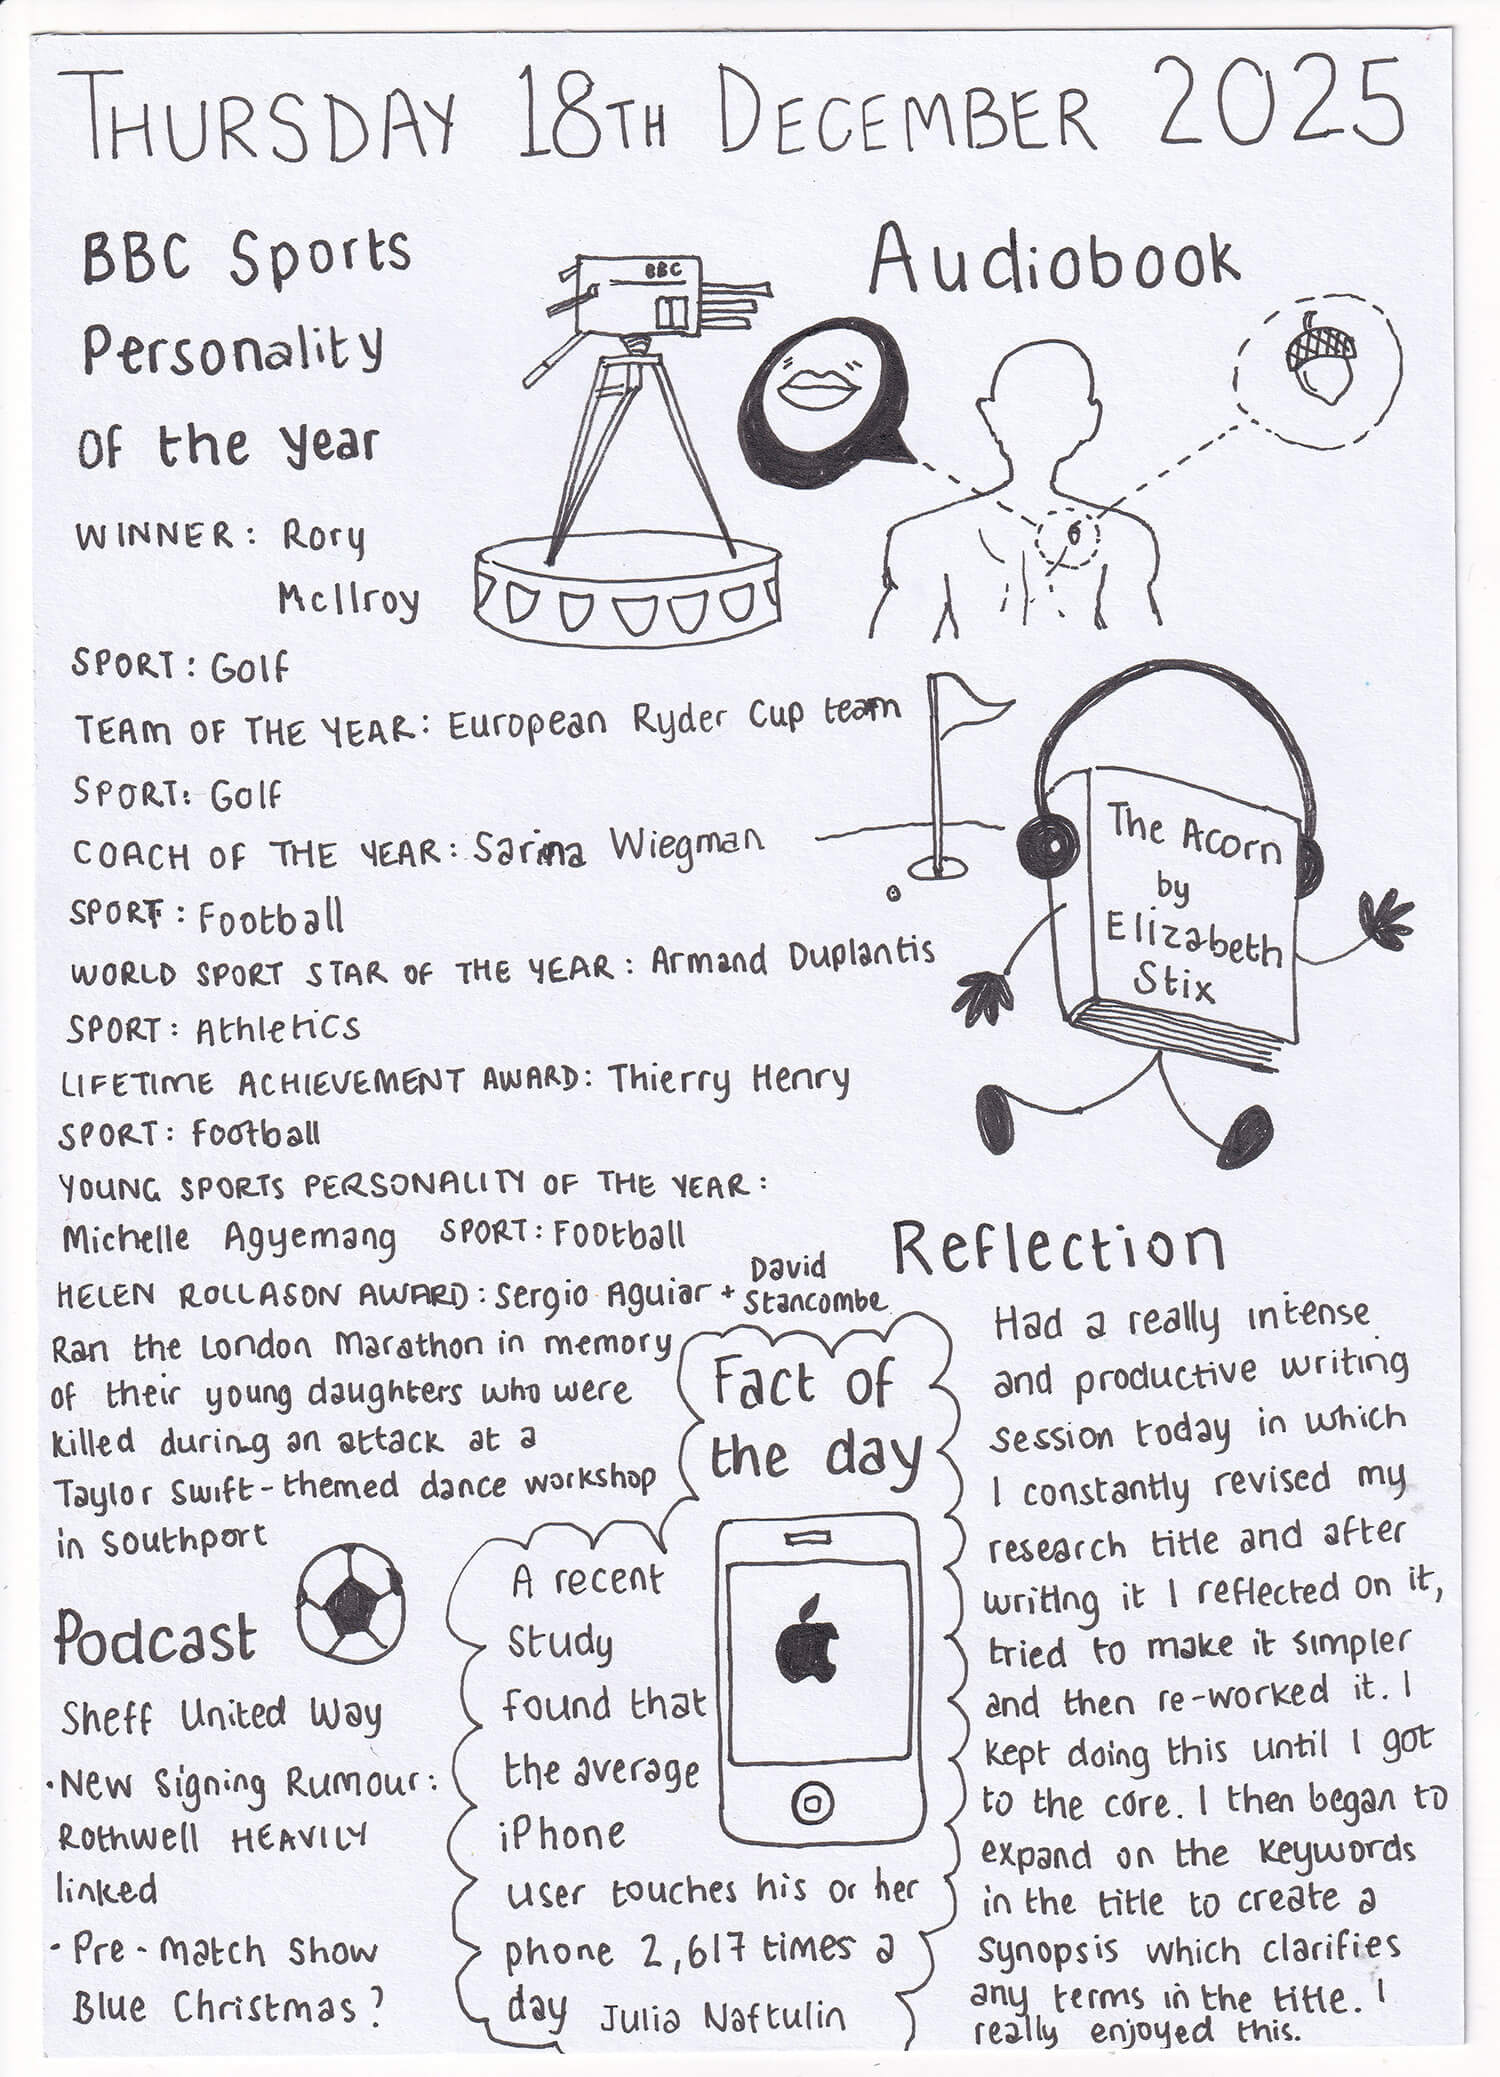 THURSDAY 18TH DECEMBER 2025
BBC Sports
Personality
Of the Year
WINNER: Rory
McIlroy
SPORT: Golf
TEAM OF THE YEAR: European Ryder Cup team
SPORT: Golf
COACH OF THE YEAR: Sarina Wiegman
SPORT: Football
WORLD SPORT STAR OF THE YEAR: Armand Duplantis
SPORT: Athletics
LIFETIME ACHIEVEMENT AWARD: Thierry Henry
SPORT: Football
YOUNG SPORTS PERSONALITY OF THE YEAR:
Michelle Agyemang SPORT: Football
HELEN ROLLASON AWARD: Sergio Aguiar + David
Stancombe
Ran the London Marathon in memory
of their young daughters who were
killed during an attack at a
Taylor Swift-themed dance workshop
in Southport
BBC
Audiobook
The Acorn
by
Elizabeth
Stix
Podcast
Sheff United Way
·New Signing Rumour:
Rothwell HEAVILY
linked
·Pre-match Show
Blue Christmas?
Fact of
the day
A recent
study
found that
the average
iPhone
user touches his or her
phone 2,617 times a
day Julia Naftulin
Reflection
Had a really intense
and productive writing
session today in which
I constantly revised my
research title and after
writing it I reflected on it,
tried to make it simpler
and then re-worked it. I
kept doing this until I got
to the core. I then began to
expand on the keywords
in the title to create a
synopsis which clarifies
any terms in the title. I
really enjoyed this.